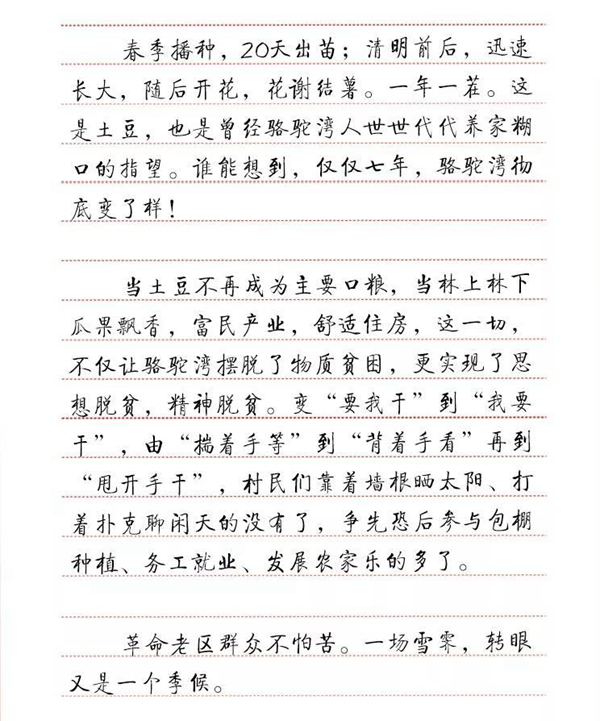 春季播种，20天出苗；清明前后，迅速
长大，随后开花，花谢结薯。一年一茬。这
是土豆，也是曾经骆驼湾人世世代代养家糊
口的指望。谁能想到，仅仅七年，骆驼湾彻
底变了样！
当土豆不再成为主要口粮，当林上林下
瓜果飘香，富民产业，舒适住房，这一切，
不仅让骆驼湾摆脱了物质贫困，更实现了思
想脱贫，精神脱贫。变“要我干”到“我要
干”，由“揣着手等”到“背着手看”再到
“甩开手干”，村民们靠着墙根晒太阳、打
着扑克聊闲天的没有了，争先恐后参与包棚
种植、务工就业、发展农家乐的多了。
革命老区群众不怕苦。一场雪霁，转眼
又是一个季候。